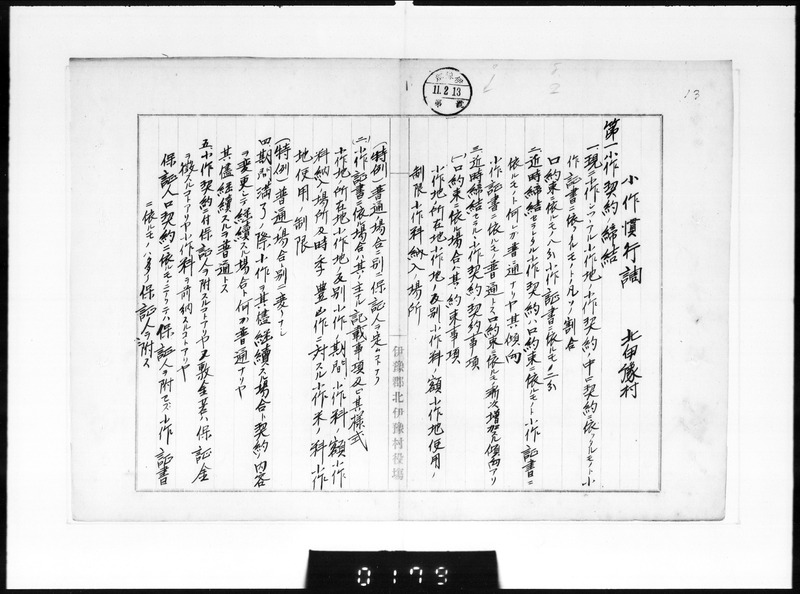 小作慣行調　北伊豫村
第一小作契約締結
一現ニ作レツヽアル小作地ノ小作契約ノ中口契約ニ依ツタルモノト小
作証書ニ依ツタルモノトノ凡ソノ割合
口約束ニ依ルモノ八分小作証書ニ依ルモノ二分
二近時締結セラルヽ小作契約ハ口約束ニ依ルモノト小作証書ニ
依ルモノト何レカ普通ナリヤ其傾向
小作証書ニ依ルモノ普通トス口約束ニ依ルモノ漸次増加スル傾向アリ
三近時締結セラルヽ小作契約ノ契約事項
(一)口約束ニ依ル場合ハ其ノ約束事項
小作地所在地小作地ノ反別小作料ノ額小作地使用ノ
制限小作料納入場所
(特例)普通ノ場合ニ別ニ保証人ヲ定ムルコトアリ
(二)小作証書ニ依ル場合ハ其ノ主ナル記載事項及ビ其様式
小作地所在地小作地ノ反別小作期間小作料ノ額小作
料納入場所及時季豊凶作ニ対スル小作米ノ料小作
地使用ノ制限
(特例)普通ノ場合ト別ニ変リナシ
四期間満了ノ際小作ヲ其儘継続スル場合ト契約内容
ヲ変更シテ継続スル場合ト何カ普通ナリヤ
其儘継続スルヲ普通トス
五小作契約ニ付保証人ヲ附スルコトアリヤ又敷金若クハ保証金
ヲ徴スルコトアリヤ小作料ヲ前納スルコトアリヤ
保証人口契約ニ依ルモノニアリテハ保証人ヲ附セズ小作証書
ニ依ルモノハ保証人ヲ附ス
伊豫郡北伊豫村役場
11.2.13
13
0179